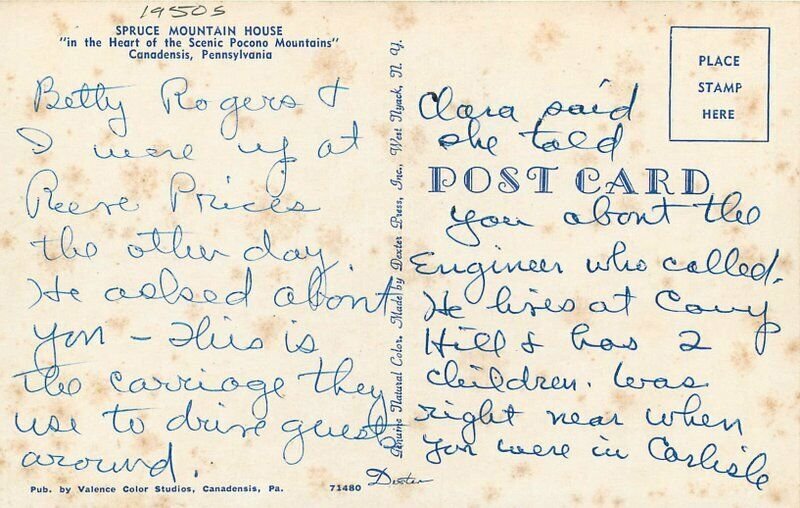 1950s
SPRUCE MOUNTAIN HOUSE
"in the Heart of the Scenic Pocono Mountains"
Canadensis, Pennsylvania
Betty Rogers &
I were up at
Reeve Prices
the other day
He asked about
you - This is
the carriage they
use to drive guests
around.
Pub. by Valence Color Studios, Canadensis, Pa.
71480
Dexter
Genuine Natural Color. Made by Dexter Press, Inc., West Nyack, N. Y.
PLACE
STAMP
HERE
Clara said
she told
POST CARD
you about the
Engineer who called.
He lives at
Hill & has 2
children. Was
right near when
you were in Carlisle